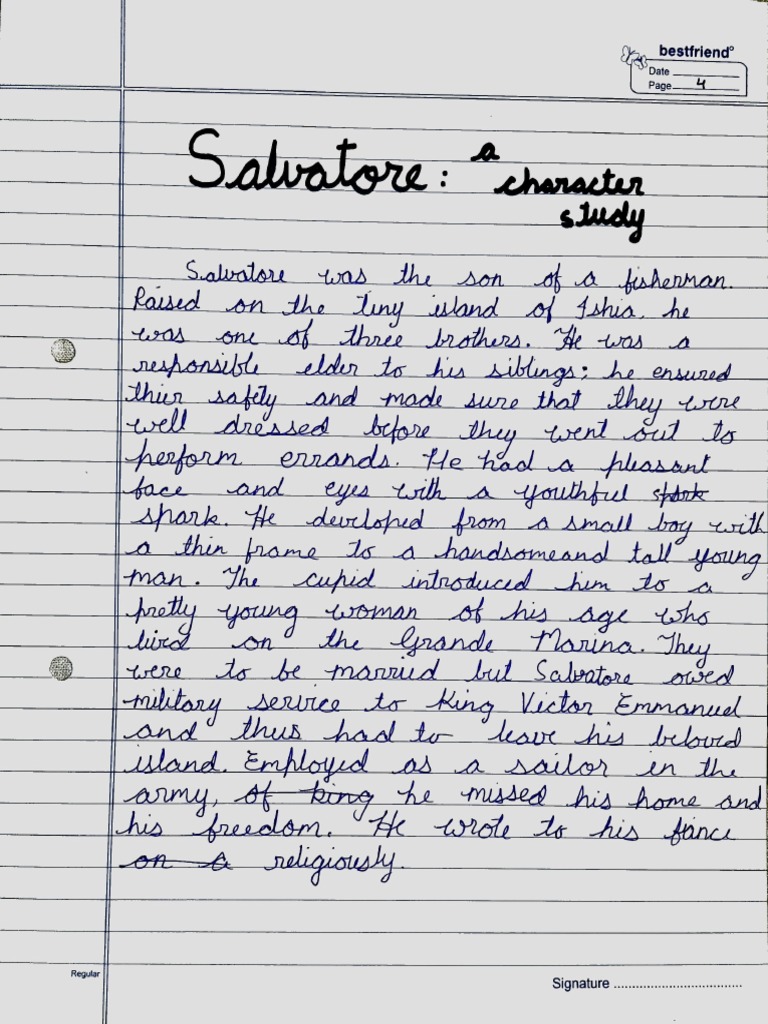 bestfriend
Date
Page 4
Salvatore: a
character
study
Salvatore was the son of a fisherman.
Raised on the tiny island of Ishia, he
was one of three brothers. He was a
responsible elder to his siblings; he ensured
thier safety and made sure that they were
well dressed before they went out to
perform errands. He had a pleasant
face and eyes with a youthful spark
spark. He developed from a small boy with
a thin frame to a handsomeand tall young
man. The cupid introduced him to a
pretty young woman of his age who
lived on the Grande Marina. They
were to be married but Salvatore owed
military service to King Victor Emmanuel
and thus had to leave his beloved
island. Employed as a sailor in the
army, of king he missed his home and
his freedom. He wrote to his fiance
on a religiously.
Regular
Signature ..................................